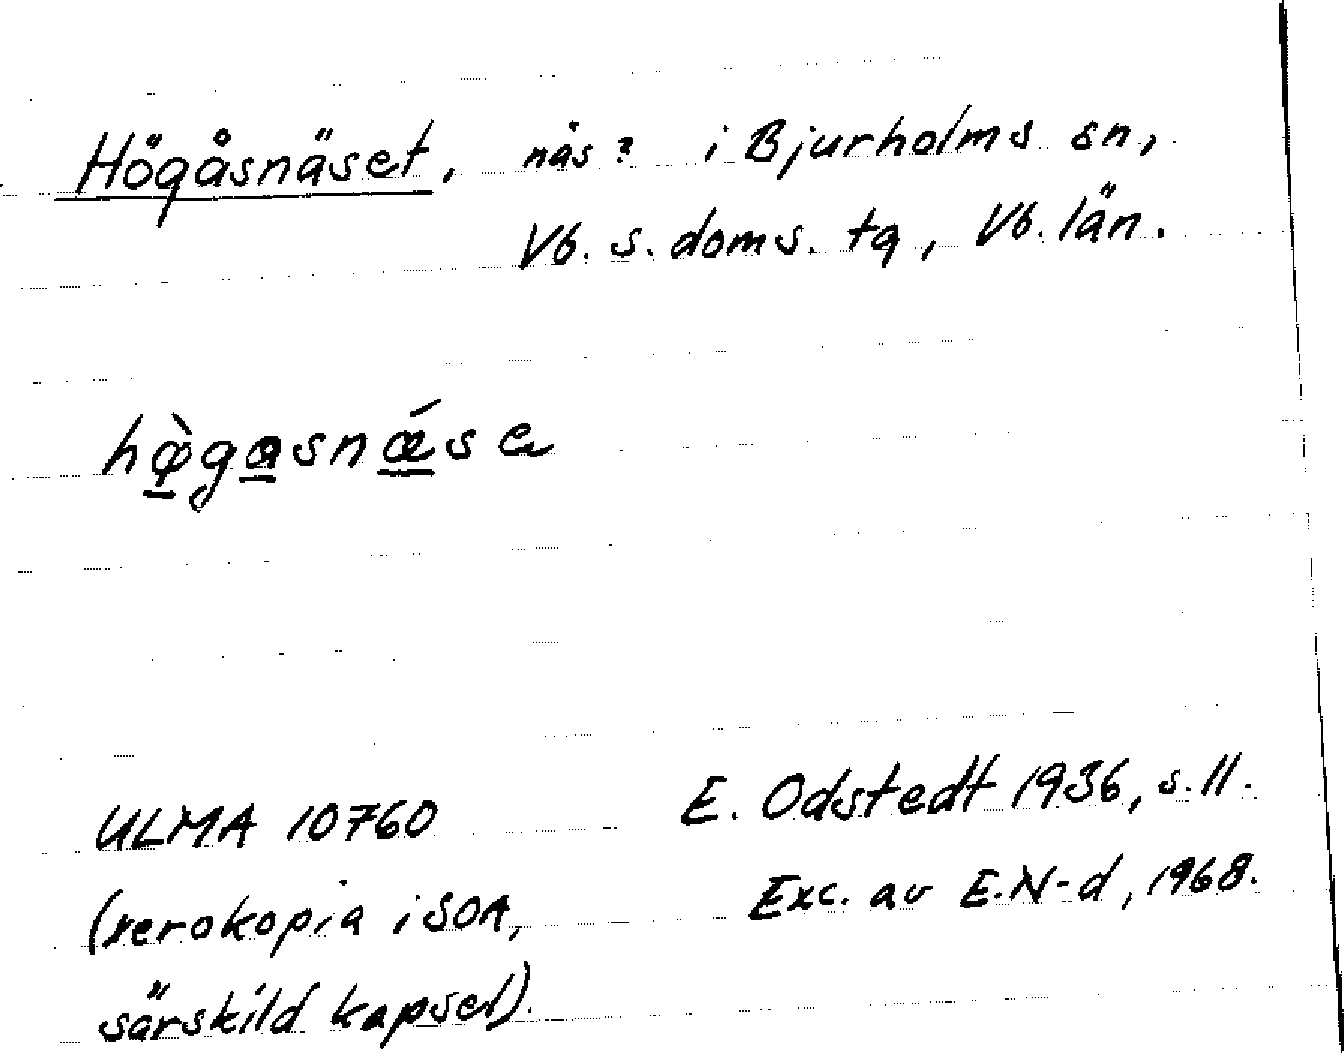 Högåsnäset, nås? i Bjurholms sn,
Vb. s. doms. tg, Vb. län.
hø̀gasnǽse
ULMA 10760
(xerokopia i SOA,
särskild kapsel).
E. Odstedt 1936, s. 11.
Exc. av E.N-d, 1968.